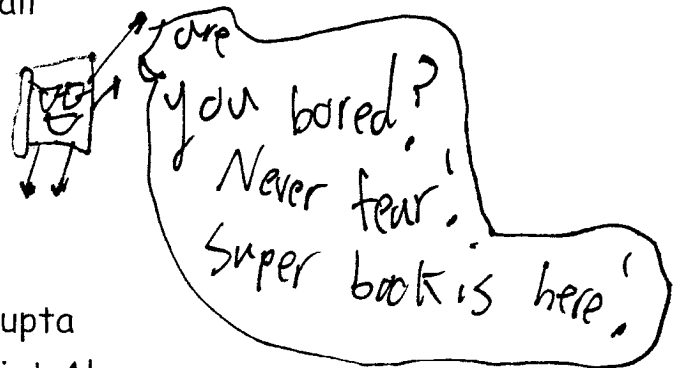 are
you bored?
Never fear!
Super book is here!
upta